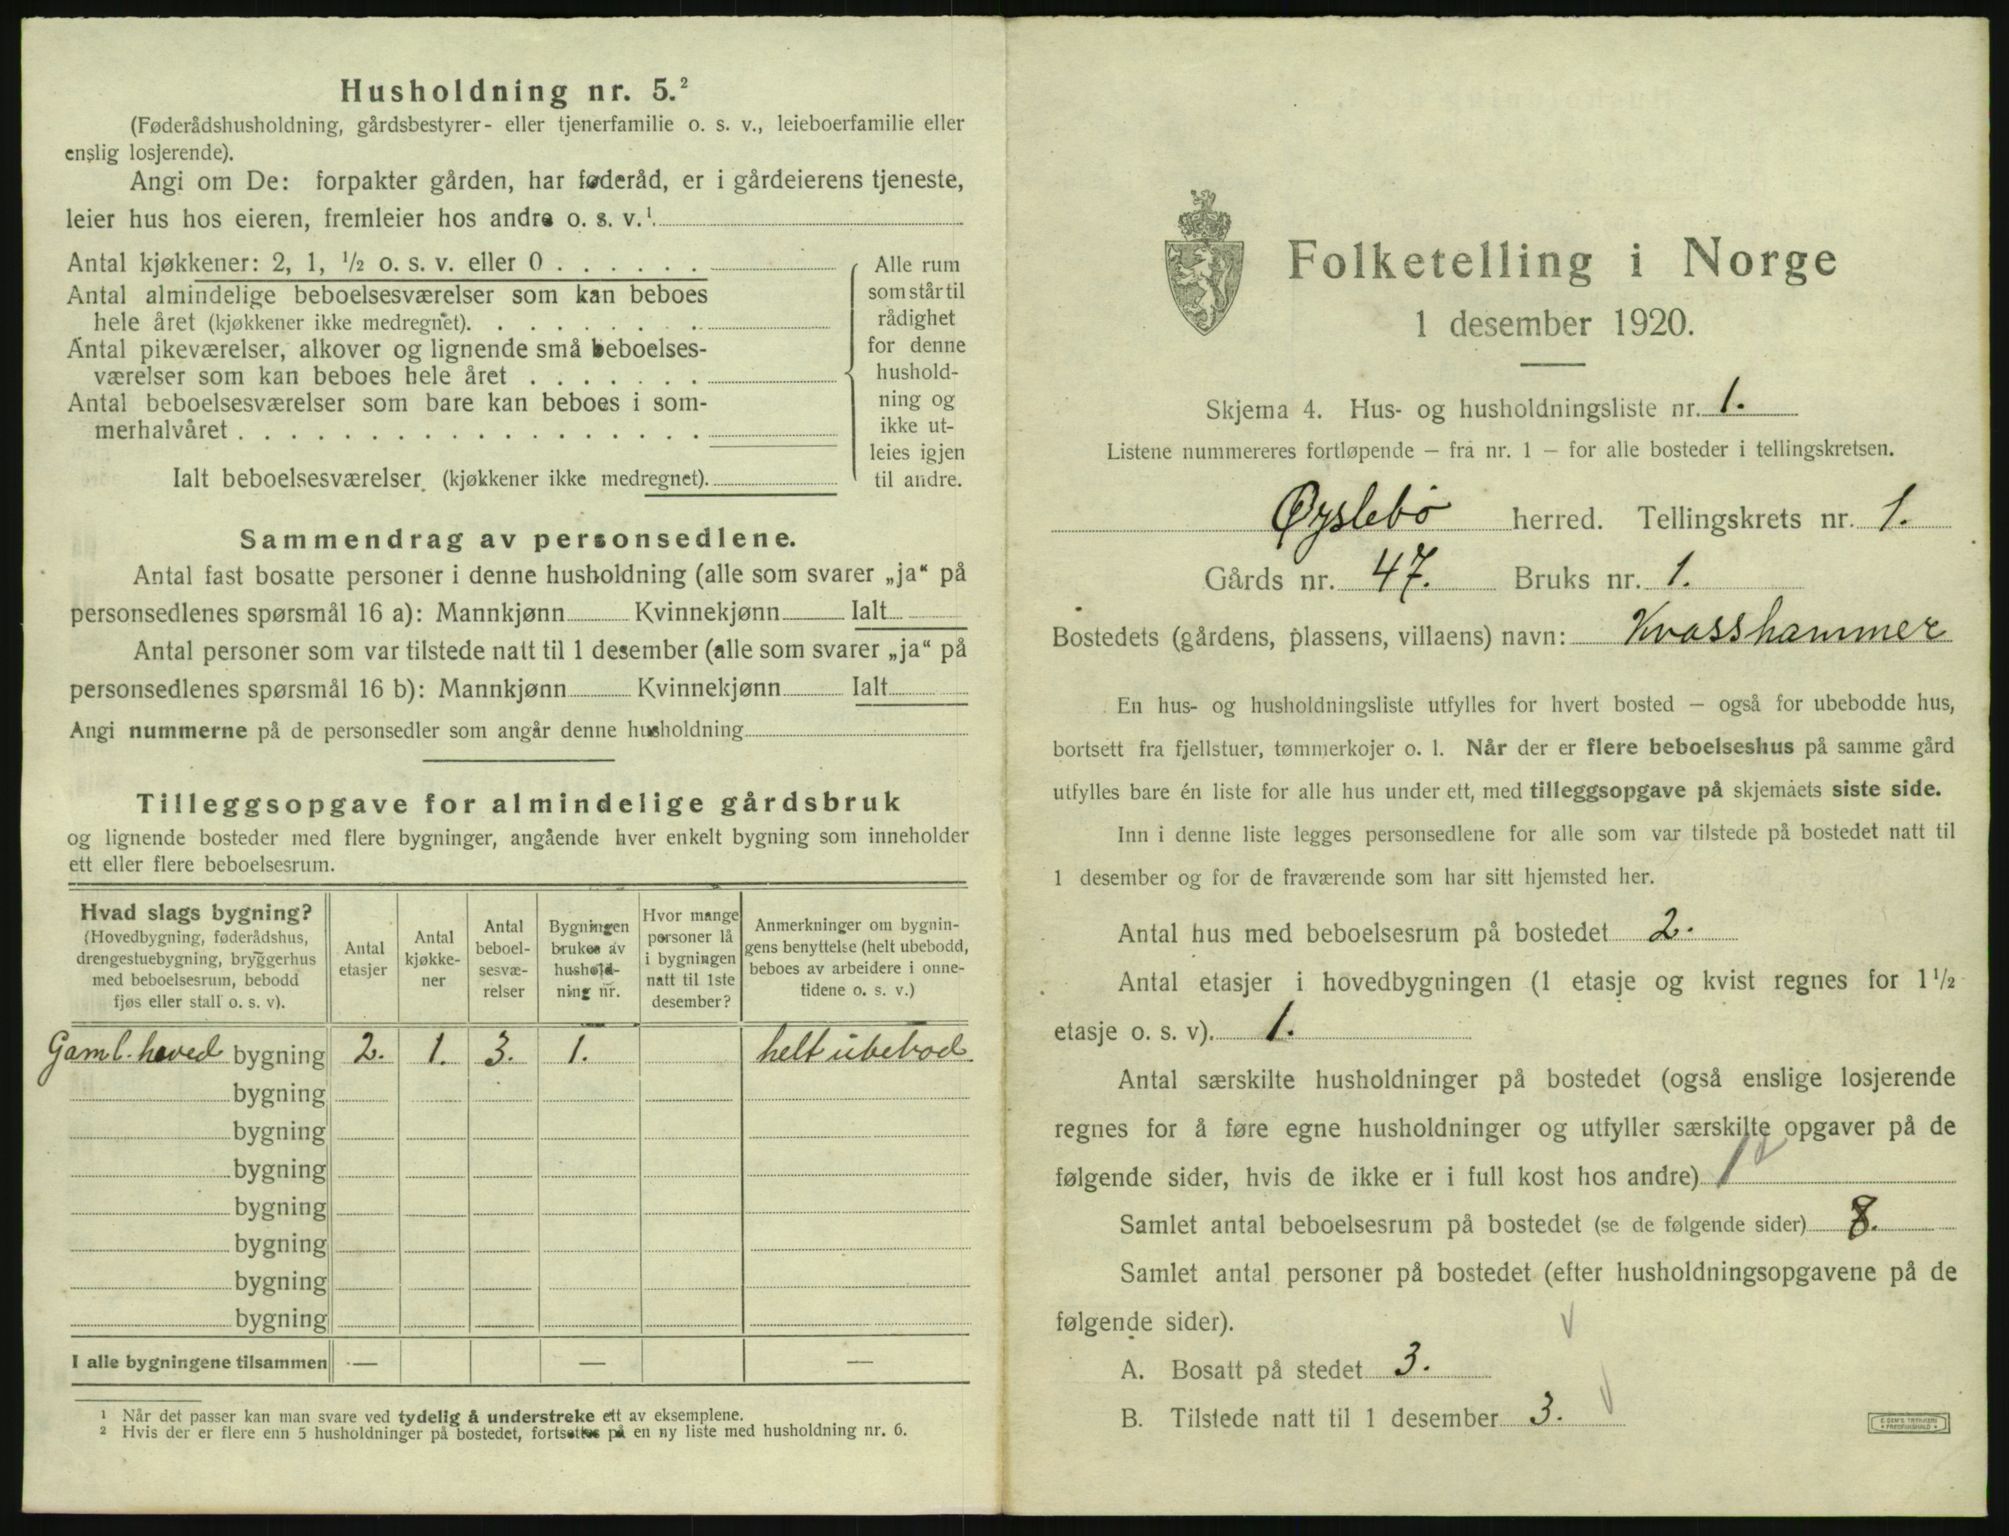 Husholdning nr. 5.²
(Føderådshusholdning, gårdsbestyrer- eller tjenerfamilie o. s. v., leieboerfamilie eller
enslig losjerende).
Angi om De: forpakter gården, har føderåd, er i gårdeierens tjeneste,
leier hus hos eieren, fremleier hos andre o. s. v.¹
Antal kjøkkener: 2, 1, ½ o. s. v. eller 0 . . . . . .
Antal almindelige beboelsesværelser som kan beboes
hele året (kjøkkener ikke medregnet). . . . . . . . .
Antal pikeværelser, alkover og lignende små beboelses-
værelser som kan beboes hele året . . . . . . .
Antal beboelsesværelser som bare kan beboes i som-
merhalvåret . . . . . . . . . . . . . . . . . .
Ialt beboelsesværelser (kjøkkener ikke medregnet).
Alle rum
som står til
rådighet
for denne
hushold-
ning og
ikke ut-
leies igjen
til andre.
Sammendrag av personsedlene.
Antal fast bosatte personer i denne husholdning (alle som svarer „ja“ på
personsedlenes spørsmål 16 a): Mannkjønn Kvinnekjønn Ialt
Antal personer som var tilstede natt til 1 desember (alle som svarer „ja“ på
personsedlenes spørsmål 16 b): Mannkjønn Kvinnekjønn Ialt
Angi nummerne på de personsedler som angår denne husholdning
Tilleggsopgave for almindelige gårdsbruk
og lignende bosteder med flere bygninger, angående hver enkelt bygning som inneholder
ett eller flere beboelsesrum.
Hvad slags bygning?
(Hovedbygning, føderådshus,
drengestuebygning, bryggerhus
med beboelsesrum, bebodd
fjøs eller stall o. s. v).
Antal
etasjer
Antal
kjøkke-
ner
Antal
beboel-
sesvæ-
relser
Bygningen
brukes av
hushold-
ning nr.
Hvor mange
personer lå
i bygningen
natt til 1ste
desember?
Anmerkninger om bygnin-
gens benyttelse (helt ubebodd,
beboes av arbeidere i onne-
tidene o. s. v.)
Gaml. hoved bygning 2. 1. 3. 1. helt ubebod
bygning
bygning
bygning
bygning
bygning
bygning
bygning
I alle bygningene tilsammen — — —
¹ Når det passer kan man svare ved tydelig å understreke ett av eksemplene.
² Hvis der er flere enn 5 husholdninger på bostedet, fortsettes på en ny liste med husholdning nr. 6.
Folketelling i Norge
1 desember 1920.
Skjema 4. Hus- og husholdningsliste nr. 1.
Listene nummereres fortløpende – fra nr. 1 – for alle bosteder i tellingskretsen.
Øyslebø herred. Tellingskrets nr. 1.
Gårds nr. 47. Bruks nr. 1.
Bostedets (gårdens, plassens, villaens) navn: Kvasshammer
En hus- og husholdningsliste utfylles for hvert bosted – også for ubebodde hus,
bortsett fra fjellstuer, tømmerkojer o. l. Når der er flere beboelseshus på samme gård
utfylles bare én liste for alle hus under ett, med tilleggsopgave på skjemaets siste side.
Inn i denne liste legges personsedlene for alle som var tilstede på bostedet natt til
1 desember og for de fraværende som har sitt hjemsted her.
Antal hus med beboelsesrum på bostedet 2.
Antal etasjer i hovedbygningen (1 etasje og kvist regnes for 1½
etasje o. s. v). 1.
Antal særskilte husholdninger på bostedet (også enslige losjerende
regnes for å føre egne husholdninger og utfyller særskilte opgaver på de
følgende sider, hvis de ikke er i full kost hos andre) 1
Samlet antal beboelsesrum på bostedet (se de følgende sider) 8.
Samlet antal personer på bostedet (efter husholdningsopgavene på de
følgende sider).
A. Bosatt på stedet 3.
B. Tilstede natt til 1 desember 3.